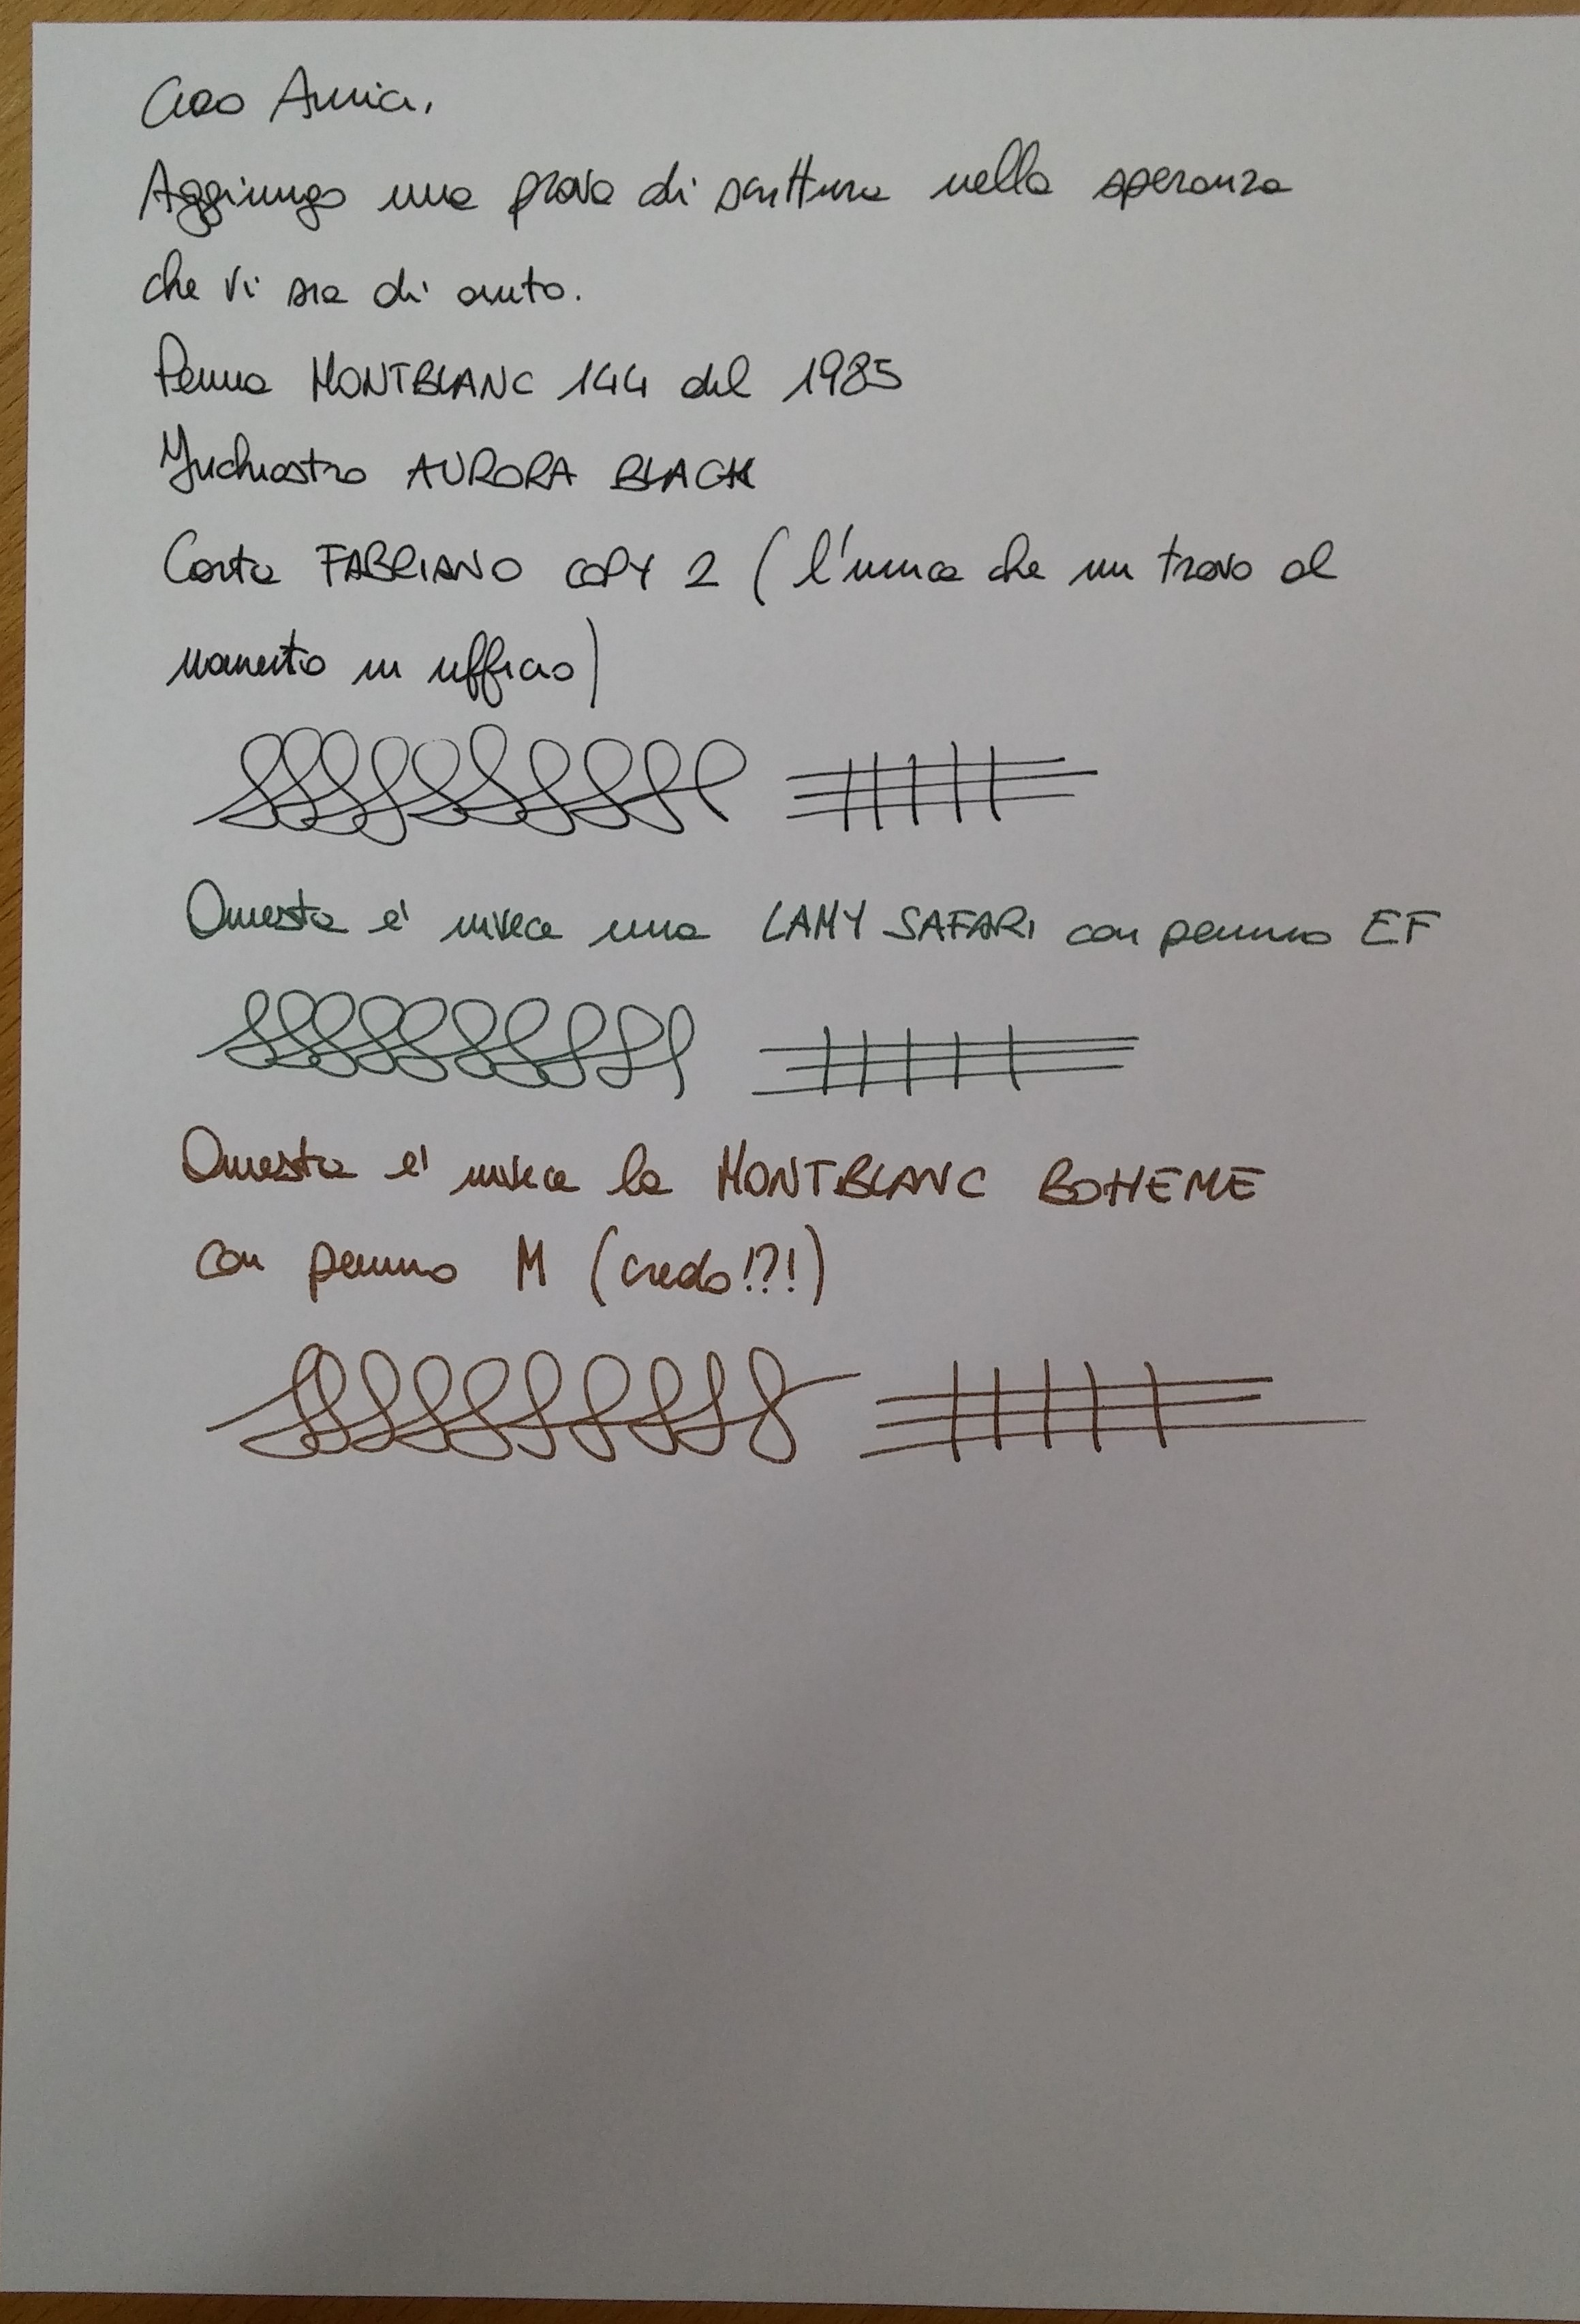 Ciao Amici,
Aggiungo una prova di scrittura nella speranza
che vi sia di aiuto.
Penna MONTBLANC 144 del 1985
Inchiostro AURORA BLACK
Carta FABRIANO COPY 2 (l'unica che mi trovo al
momento in ufficio)
Questa e' invece una LAMY SAFARI con pennino EF
Questa e' invece la MONTBLANC BOHEME
con pennino M (credo!?!)